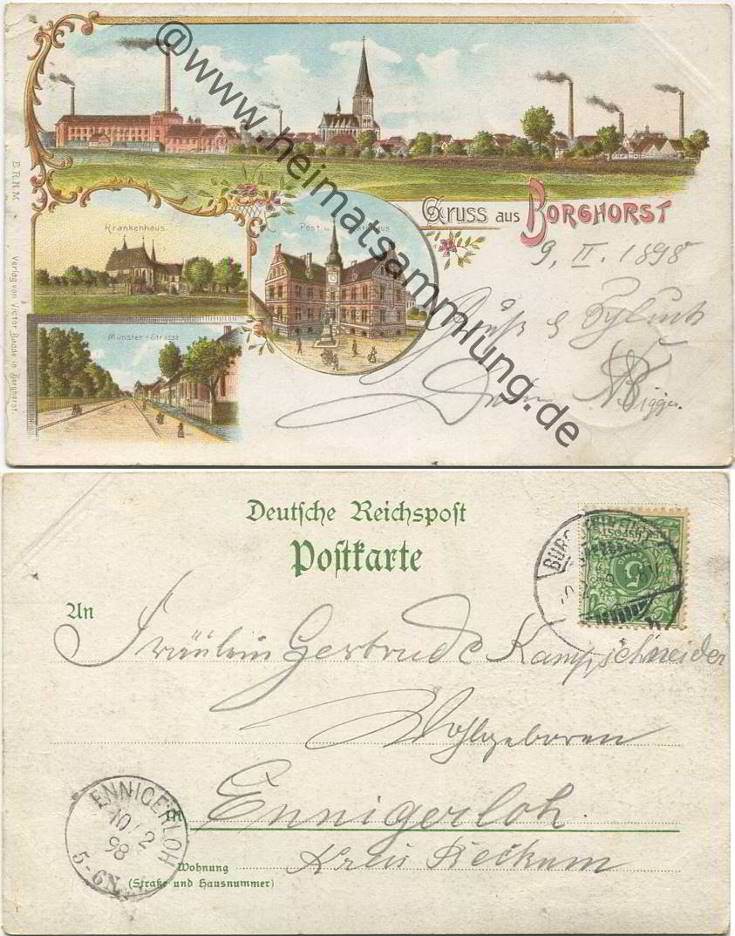 @www.heimatsammlung.de
Gruss aus BORGHORST
9. II. 1898
Krankenhaus.
Post u.
Münster-Strasse
Verlag von Victor in Borghorst.
Gruß &
Deutsche Reichspost
Postkarte
An
Fräulein Gertrude Kampschneider
Wohlgeboren
Ennigerloh.
Kreis Beckum
Wohnung
(Straße und Hausnummer)
ENNIGERLOH
10/2
98
5-6N.
5